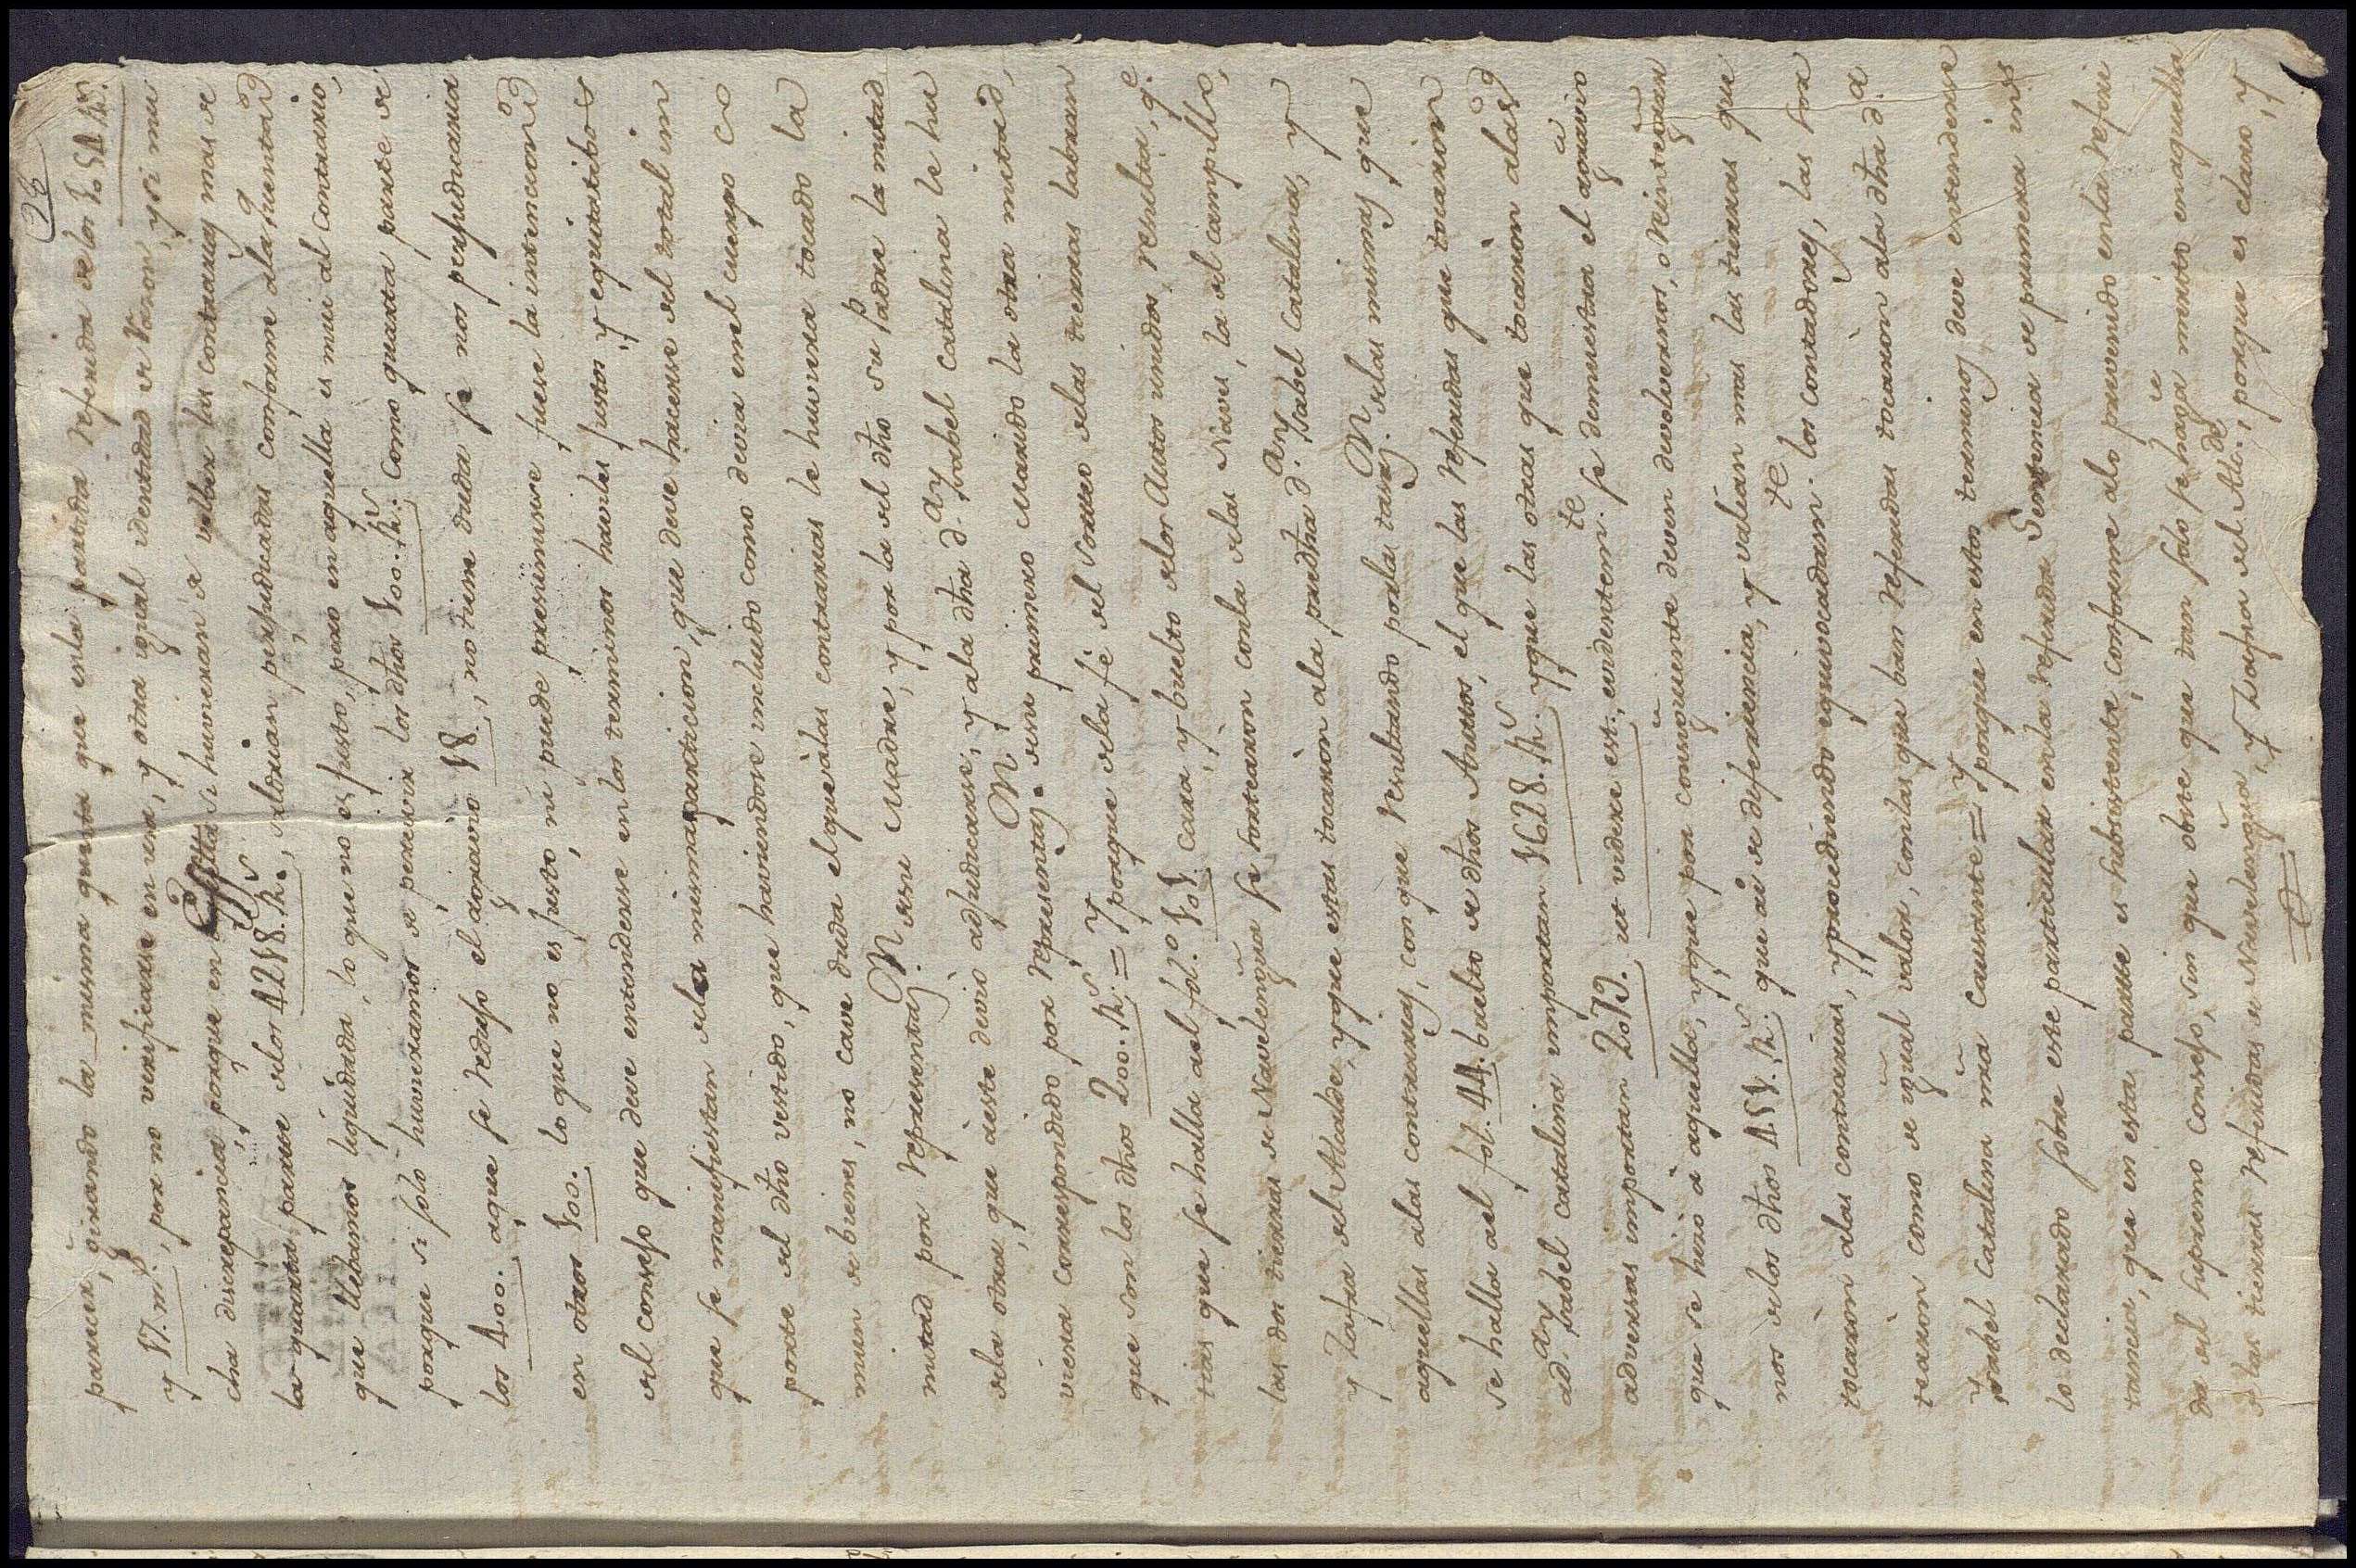 28
paruca, girando la misma quenta que en la partida referida de los 5051 Rs.
y 17 ms., por no verificarse en una, y otra igual identidad de Razon, y si mu
cha discrepancia, porque en si huvieran de vellar las contrarias mas de
la quarta parte de los 4258. Rs., saldrian perjudicadas conforme a la quenta q
que llebamos liquidada, lo que no es justo, pero en aquella es mui al contrario,
porque si solo huvieramos de percivir los dhos 500. Rs. como quarta parte de
los 400. a que se redujo el agravio 18., no tiene duda se nos perjudicaria
en otros 500. lo que no es justo, ni puede presumirse fuese la intencion d
del consejo que deve entenderse en los terminos haviles justos, y equitatibos
que se manifiestan de la misma particion, que deve hacerse del total im
porte del dho vestido, que haviendose incluido como devia en el cuerpo co
mun de bienes, no cave duda el que a las contrarias le huviera tocado la
mitad por representaz.n de su Madre, y por la del dho su Padre la mitad
de la otra, que a este devio adjudicarse, y a la dha d.a Ysabel Catalina le hu
viera correspondido por representaz.n de su primero Marido la otra mitad,
que son los dhos 200. Rs. = Y porque de la fe del sorteo de las tierras labran
tias que se halla al fol.o 505 caxa, y buelto de los Autos unidos, resulta, q.e
las dos tierras de Navelengua se sortearon con la de las Naves, la del campillo,
y Zafra del Alcalde, y que estas tocaron a la predha d.a Ysabel Catalina, y
aquellas a las contrarias, con que resultando por la tasaz.n de las mismas que
se halla al fol. 44. buelto de dhos Auttos, el que las referidas que tocaron
a d.a Ysabel Catalina importan 1628. Rs. y que las otras que tocaron a las
adversas importan 2073. ut videre est., evidentem.te se demuestra el agravio
que se hizo a aquella, y que por consiguiente deven devolvernos, o Reintegrar
nos de los dhos 455. Rs. que ai de diferiencia, y valian mas las tierras que
tocaron a las contrarias, y procediendo equivocadam.te los contadores, las sor
tearon como de igual valor, con las que ban referidas tocaron a la dha d.a
Ysabel Catalina ma causante = Y porque en estos terminos deve entenderse
lo declarado sobre este particular en la referida Sentencia de primera ins
tancia, que en esta parte es subsistente, conforme a lo prevenido en la Referi
da del supremo Consejo, sin que obste que tan solo se haga merito en aquella
de las tierras referidas de Navelengua, y Zafra del Alc.de, porque es claro, y